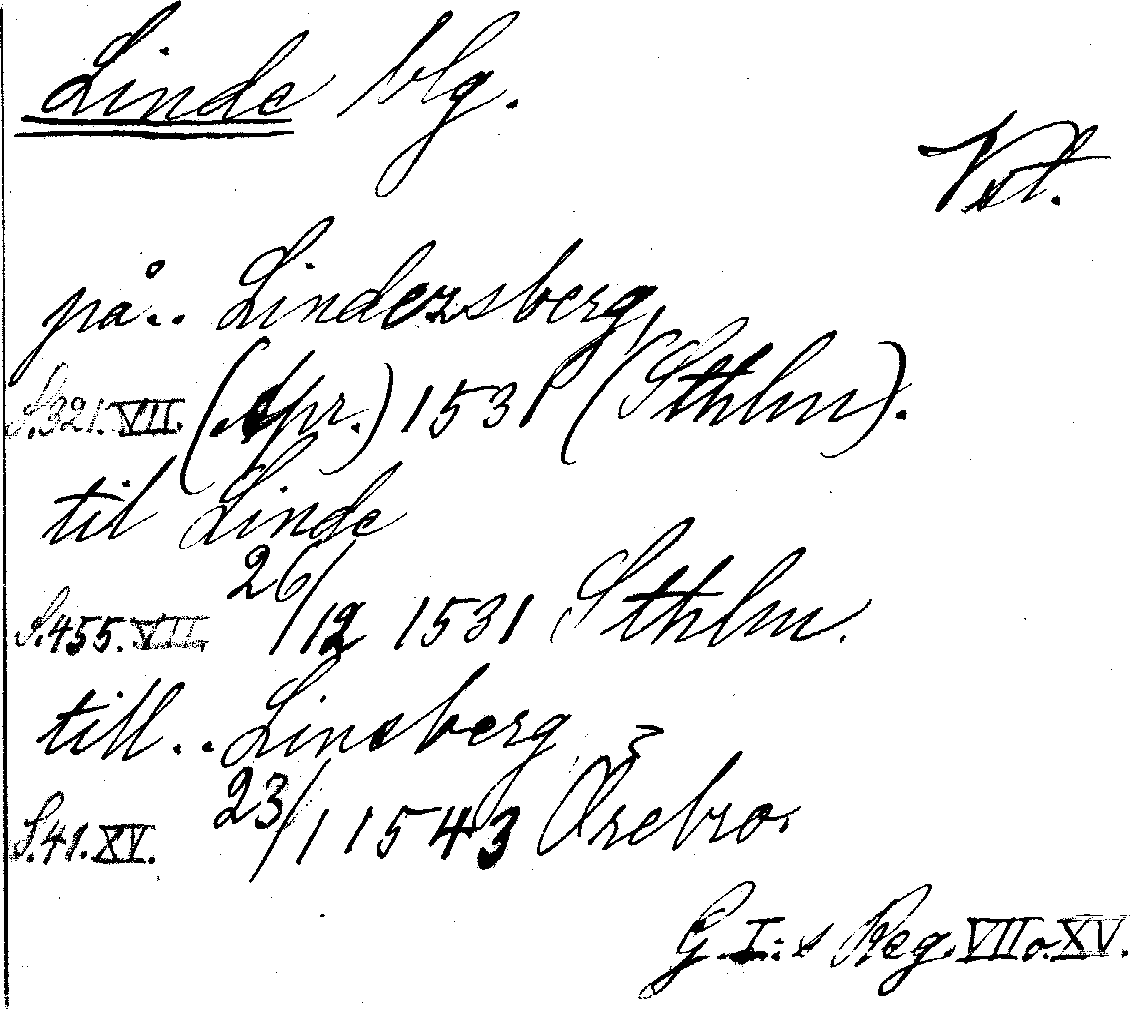 Linde blg.
Vst.
på.. Lindersberg,
S.321.VII. (Apr.) 1531 (Sthlm).
til Linde
S.455.VII. 26/12 1531 Sthlm.
till.. Lineberg
S.41.XV. 23/1 1543 Örebro.
G.I:s Reg. VII o. XV.